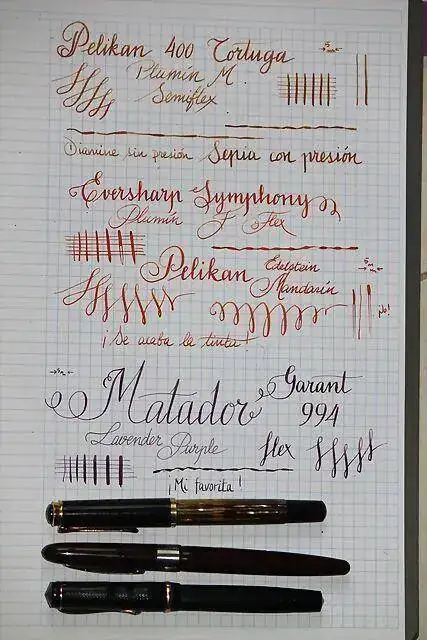 Pelikan 400 Tortuga
Plumín M
Semiflex
5 mm
Diamine sin presión Sepia con presión
Eversharp Symphony
Plumín F Flex
Pelikan Edelstein
Mandarín
5 mm
¡No!
¡Se acaba la tinta!
Matador Garant
994
Lavender Purple flex
¡Mi favorita!